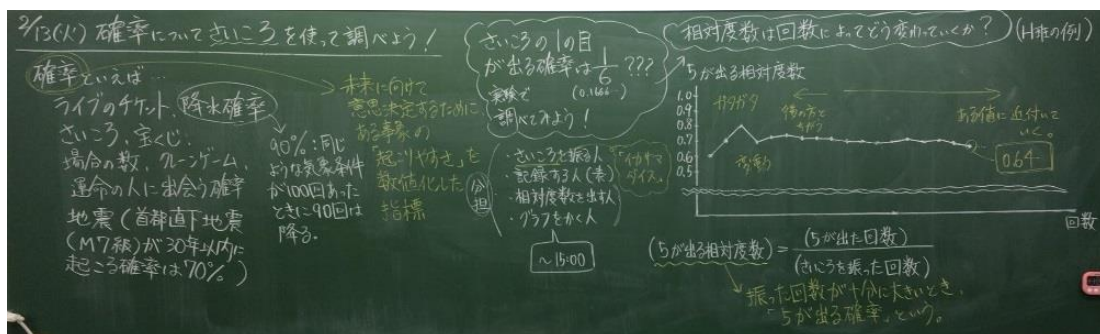 2/13(火) 確率についてさいころを使って調べよう!
確率といえば…
ライブのチケット、降水確率
さいころ、宝くじ、
場合の数、クレーンゲーム、
運命の人に出会う確率
地震(首都直下地震
(M7級)が30年以内に
起こる確率は70%)
90%:同じ
ような気象条件
が100回あった
ときに90回は
降る。
未来に向けて
意思決定するために
ある事象の
「起こりやすさ」を
数値化した
指標
さいころの1の目
が出る確率は1/6???
(0.1666…)
実験で
調べてみよう!
分担
・さいころを振る人
・記録する人(表)
・相対度数を出す人
・グラフをかく人
「イカサマ
ダイス」
~15:00
相対度数は回数によってどう変わっていくか?
(H班の例)
5が出る相対度数
1.0
0.9
0.8
0.7
0.6
0.5
ガタガタ
変動
後の方と
ちがう
ある値に近付いて
いく。
0.64
回数
(5が出る相対度数)=(5が出た回数)/(さいころを振った回数)
振った回数が十分に大きいとき、
「5が出る確率」という。